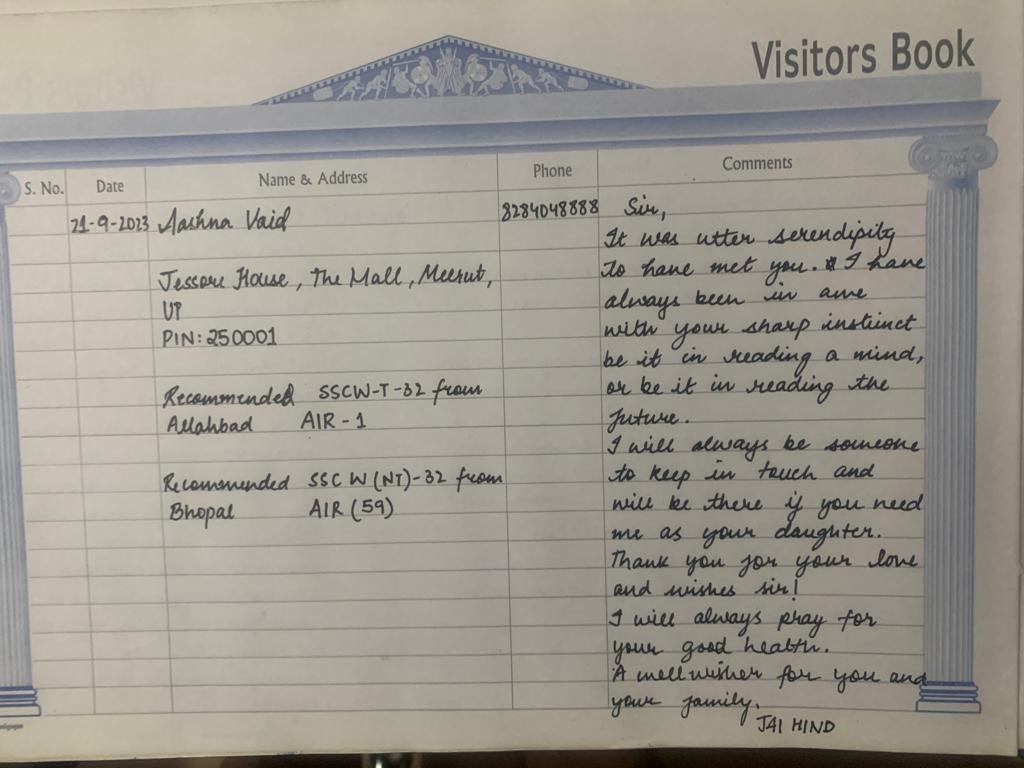 Visitors Book
S. No. Date Name & Address Phone Comments
21-9-2023 Aashna Vaid 8284048888
Jessore House, The Mall, Meerut,
UP
PIN: 250001
Recommended SSCW-T-32 from
Allahbad AIR - 1
Recommended SSC W (NT)-32 from
Bhopal AIR (59)
Sir,
It was utter serendipity
to have met you. I have
always been in awe
with your sharp instinct
be it in reading a mind,
or be it in reading the
future.
I will always be someone
to keep in touch and
will be there if you need
me as your daughter.
Thank you for your love
and wishes sir!
I will always pray for
your good health.
A well wisher for you and
your family.
JAI HIND